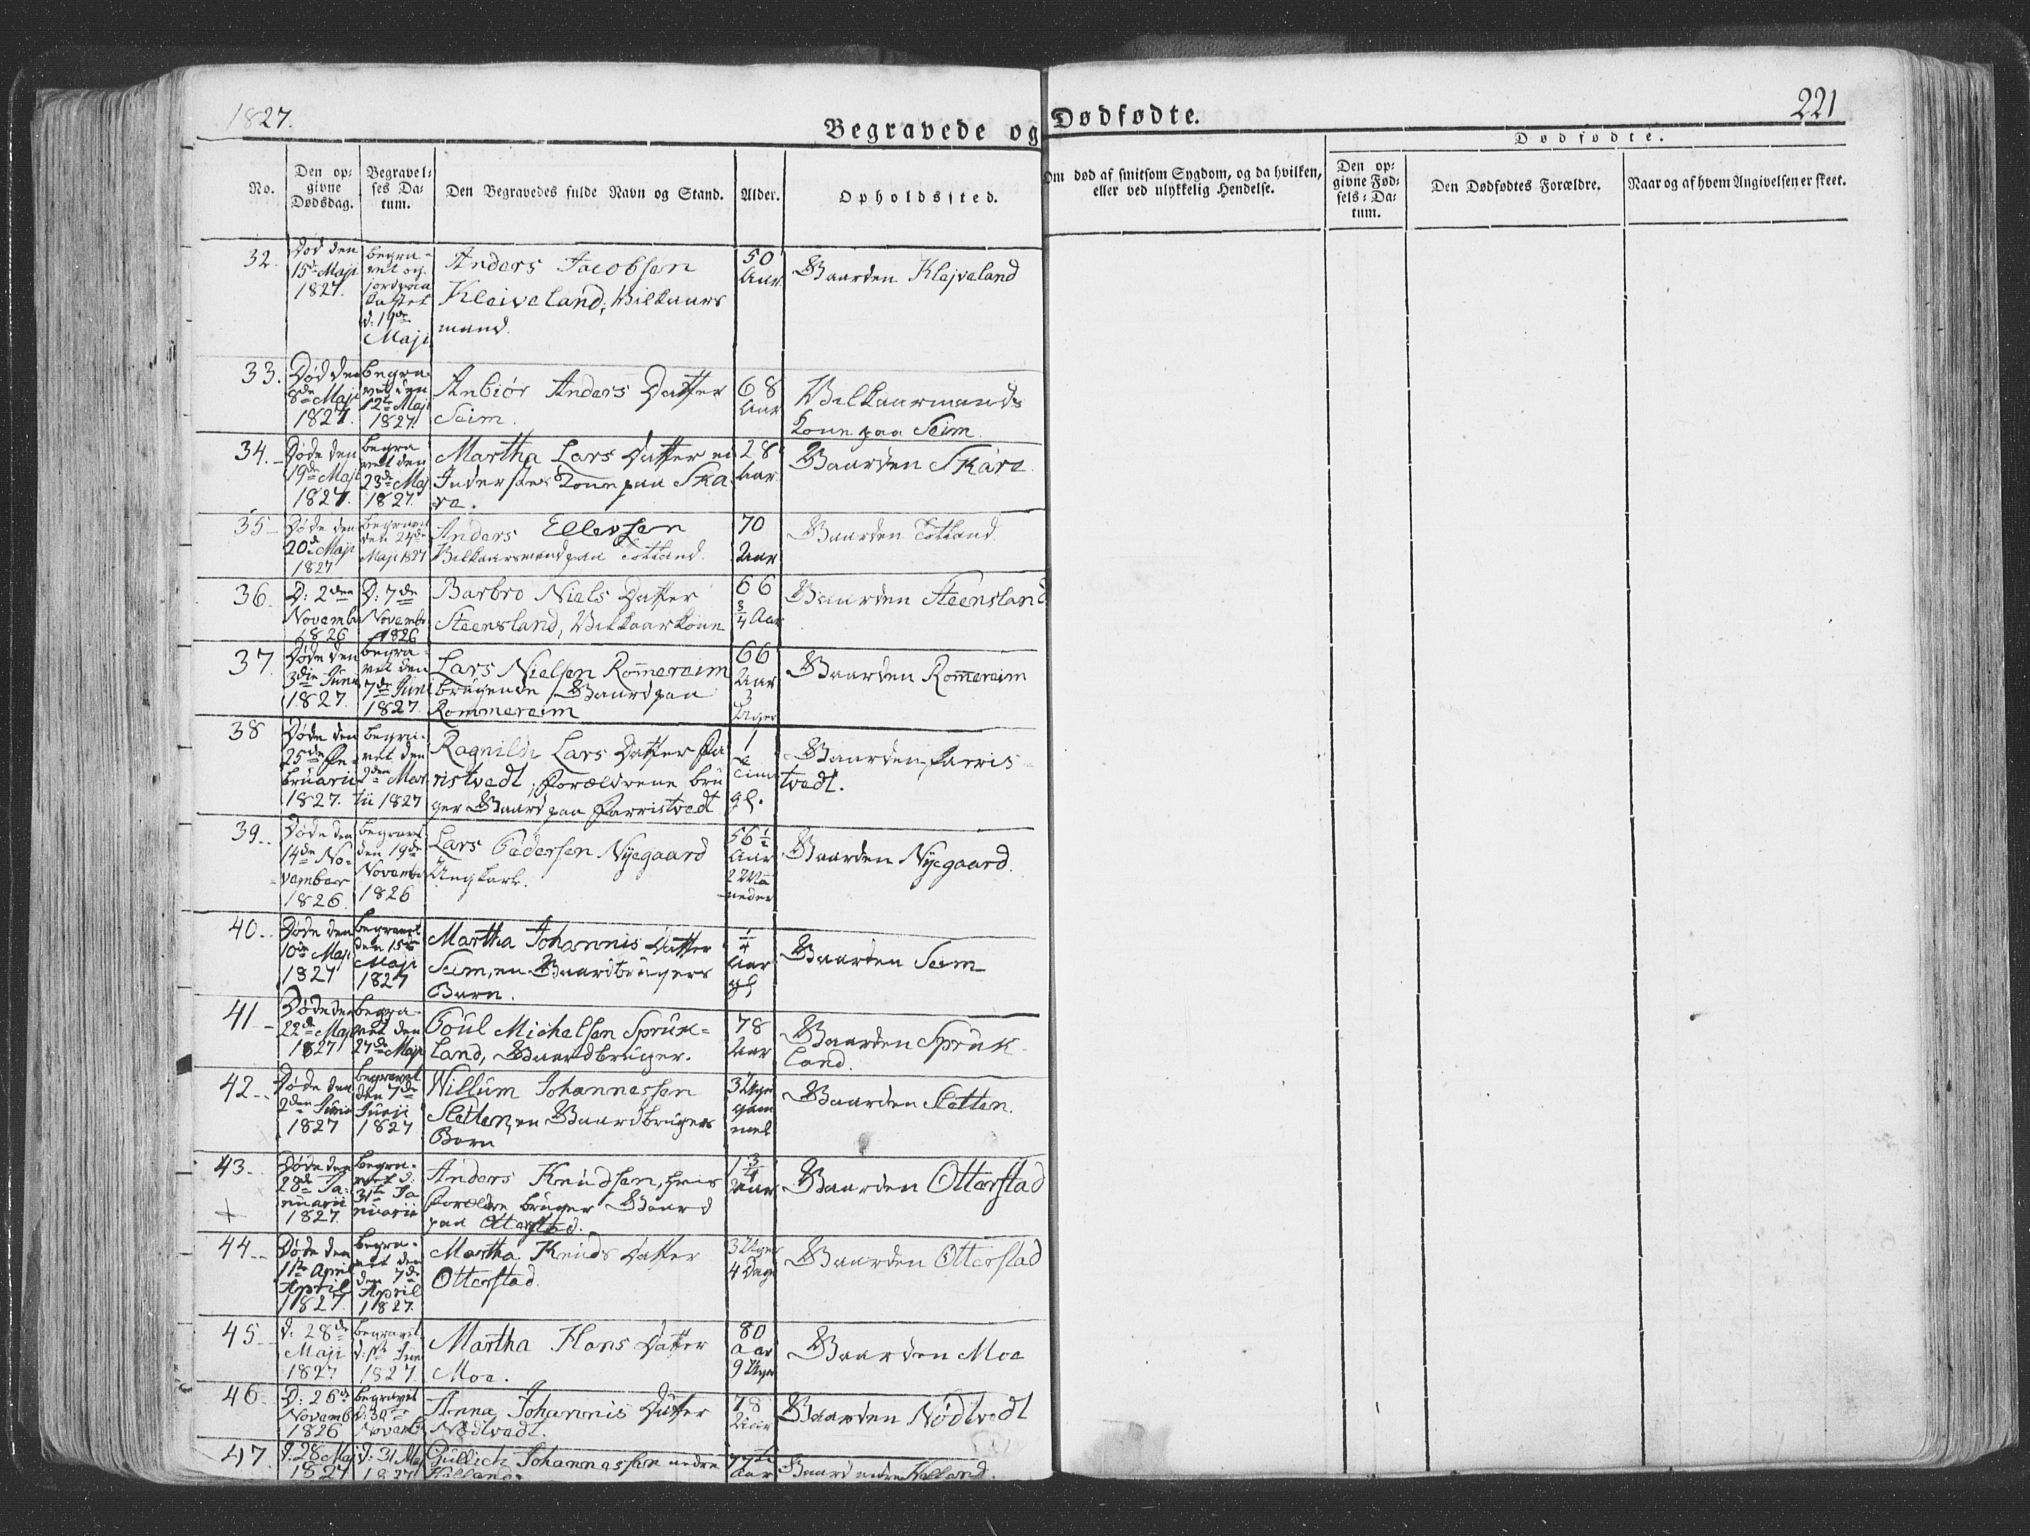 1827.
221
Begravede og Dødfødte.
Dødfødte.
No.
Den op=
givne
Dødsdag.
Begravel=
ses Da=
tum.
Den Begravedes fulde Navn og Stand.
Alder.
Opholdssted.
Om død af smitsom Sygdom, og da hvilken,
eller ved ulykkelig Hendelse.
Den op=
givne Fød=
sels=Da=
tum.
Den Dødfødtes Forældre.
Naar og af hvem Angivelsen er skeet.
32.
Død den
15de Maji
1827.
begra-
vet og
jordpaa
kastet
d: 19de
Maji
Anders Jacobsen
Kleiveland, Vilkaars
mand.
50
Aar
Gaarden Klejveland
33.
Død den
8de Maji
1827.
begra-
vet den
12te Maji
1827.
Anbiør Anders Datter
Seim.
68
Aar
Vilkaarmands
Kone paa Seim.
34.
Døde den
19de Maji
1827.
begra
vet den
23de Maj
1827.
Martha Lars Datter en
Inderstes Kone paa Ska
re.
28
Aar
Gaarden Skare.
35
Døde den
20de Maji
1827
begravet
den 24de
Maji 1827
Anders Ellevsen
Vilkaarsmand paa Totland.
70
Aar
Gaarden Totland.
36.
D: 2den
Novemb
1826
D: 7de
Novemb
1826
Barbro Niels Datter
Steensland, Vilkaarkone
66
3/4 Aar
Gaarden Steensland
37.
Døde den
3die Juni
1827.
begra-
vet den
7de Juni
1827.
Lars Nielsen Romereim
brugende Gaard paa
Rommereim
66
Aar
3
Uger
Gaarden Romereim
38
Døde den
25de Fe-
bruarii
1827.
begra-
vet den
2den Mar
tii 1827
Ragnilde Lars Datter Fa
ristvedt, Forældrene bru
ger Gaard paa Farristvedt
1
Time
gl.
Gaarden Farris-
tvedt.
39.
Døde den
14de No-
vember
1826.
begravet
den 19de
Novemb
1826
Lars Pedersen Nyegaard
Ungkarl.
56 1/2
Aar
2 Maa
neder
Gaarden Nyegaard.
40.
Døde den
10de Maji
1827
begravet
den 15de
Maji
1827
Martha Johannis Datter
Seim, en Gaardbrugers
Barn.
1/4
Aar
gl
Gaarden Seim
41
Døde den
22de Maji
1827
begra-
vet den
27de Maji
Poul Michelsen Spruk-
land, Gaardbruger.
78
Aar
Gaarden Spruk-
land.
42.
Døde den
2den Junii
1827
begravet
den 7de
Junii
1827
Willum Johannessen
Sletten, en Gaardbrugers
Barn
3 Uger
gam
mel
Gaarden Sletten.
43.
Døde den
28de Ja-
nuarii
1827.
begra-
vet d:
31te Ja
nuarii
Anders Knudsen, hvis
Forældre bruger Gaard
paa Otterstad.
1 3/4
Aar
Gaarden Otterstad
44.
Døde den
1ste April
April
1827.
begra-
vet den
den 7de
April
1827.
Martha Knuds Datter
Otterstad.
3 Uger
4 Dage
Gaarden Otterstad
45
d: 28de
Maji
1827
begravet
d: 1ste Juni
1827.
Martha Hans Datter
Moe.
80
aar
9 Uger
Gaarden Moe
46
D: 26de
Novemb
1826
begravet
d: 30te
Novemb
Anna Johannis Datter
Nødtvedt.
78
Aar
Gaarden Nødtvedt
47.
d: 28 Maj
1827
d: 31 Maj
1827
Gullich Johannessen nedre
Helland.
Aar
Gaard nedre Helland.